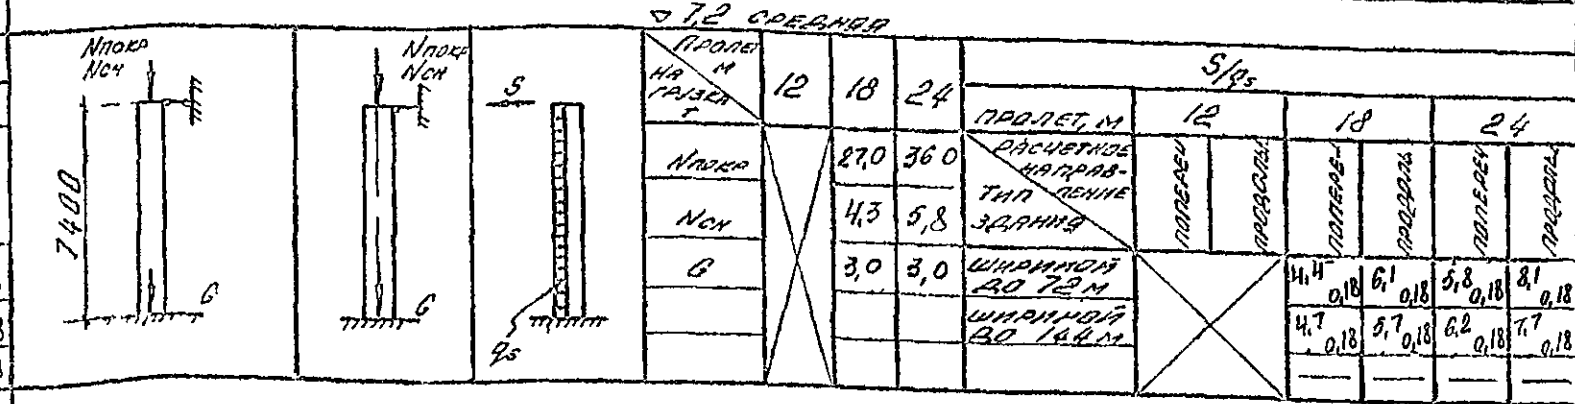 ▽ 7,2 СРЕДНЯЯ
Nпокр
Nсн
7400
G
Nпокр
Nсн
G
S
qs
ПРОЛЕТ М
НАГРУЗКА Т
12 18 24
Nпокр 27,0 36,0
Nсн 4,3 5,8
G 3,0 3,0
S/qs
ПРОЛЕТ, М 12 18 24
РАСЧЕТНОЕ НАПРАВ-
ЛЕНИЕ
ТИП
ЗДАНИЯ
ПОПЕРЕЧ ПРОДОЛЬН ПОПЕРЕЧ ПРОДОЛЬ ПОПЕРЕЧ ПРОДОЛЬ
ШИРИНОЙ
ДО 72 М
4,4 0,18 6,1 0,18 5,8 0,18 8,1 0,18
ШИРИНОЙ
ДО 144 М
4,7 0,18 5,7 0,18 6,2 0,18 7,7 0,18
— — — —